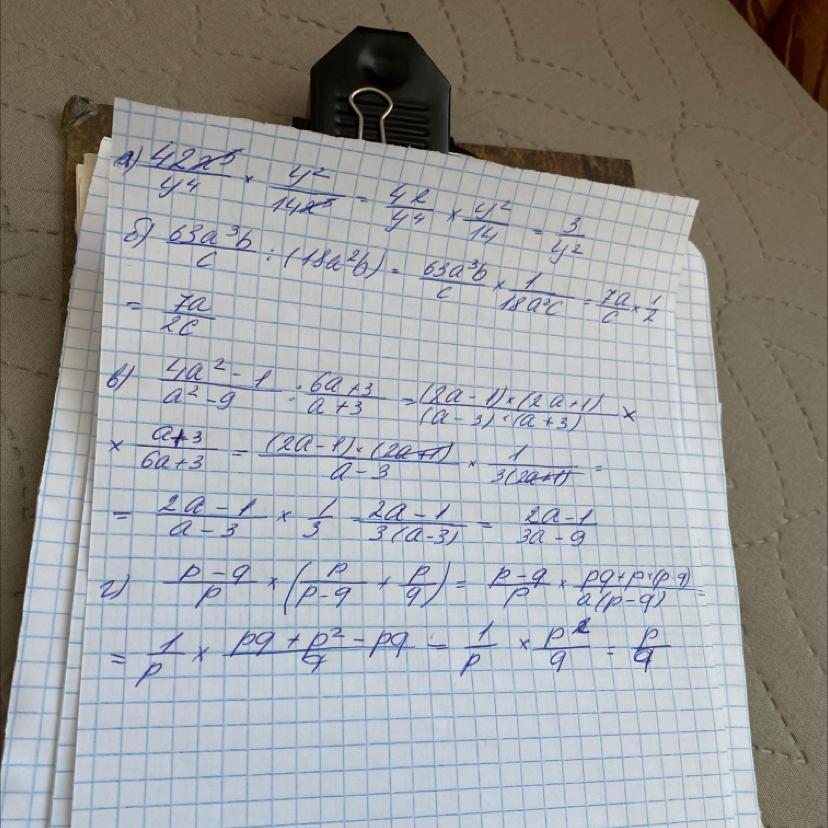 а) 42x⁵/y⁴ × y²/14x⁵ = 42/y⁴ × y²/14 = 3/y²
б) 63a³b/c : (18a²b) = 63a³b/c × 1/18a²c = 7a/c × 1/2
= 7a/2c
в) 4a² - 1/a² - 9 : 6a + 3/a + 3 = (2a - 1) × (2a + 1)/(a - 3) × (a + 3) ×
× a + 3/6a + 3 = (2a - 1) × (2a + 1)/a - 3 × 1/3(2a + 1) =
= 2a - 1/a - 3 × 1/3 2a - 1/3(a - 3) = 2a - 1/3a - 9
г) p - q/p × (p/p - q + p/q) = p - q/p × pq + p × (p - q)/a(p - q) =
= 1/p × pq + p² - pq/q = 1/p × p²/q = p/q